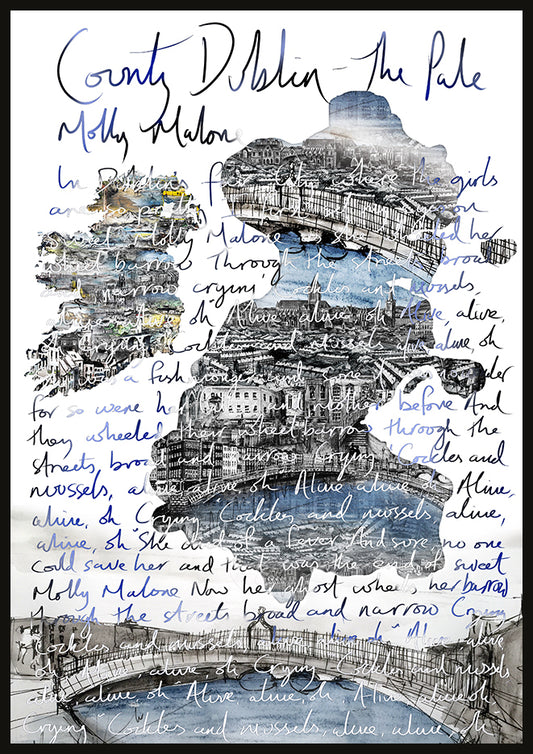 County Dublin - The Pale
Molly Malone
In Dublin's fair city where the girls
are so pretty I first set my eyes on
sweet Molly Malone as she wheeled her
wheel barrow Through the streets broad
and narrow crying "Cockles and mussels,
alive, alive, oh Alive, alive, oh Alive, alive,
oh Crying "Cockles and mussels alive, alive, oh
She was a fishmonger and sure
For so were her father and mother before And
they wheeled their wheel barrow through the
streets, broad and narrow Crying "Cockles and
mussels, alive, alive, oh Alive, alive, oh Alive,
alive, oh Crying "Cockles and mussels alive,
alive, oh" She died of a fever And sure no one
could save her and that was the end of sweet
Molly Malone Now her ghost wheels her barrow
Through the streets broad and narrow Crying
"Cockles and mussels, alive, alive, oh" Alive, alive
oh Alive, alive, oh Crying "Cockles and mussels
alive, alive, oh Alive, alive, oh, Alive, alive, oh,
Crying "Cockles and mussels, alive, alive, oh